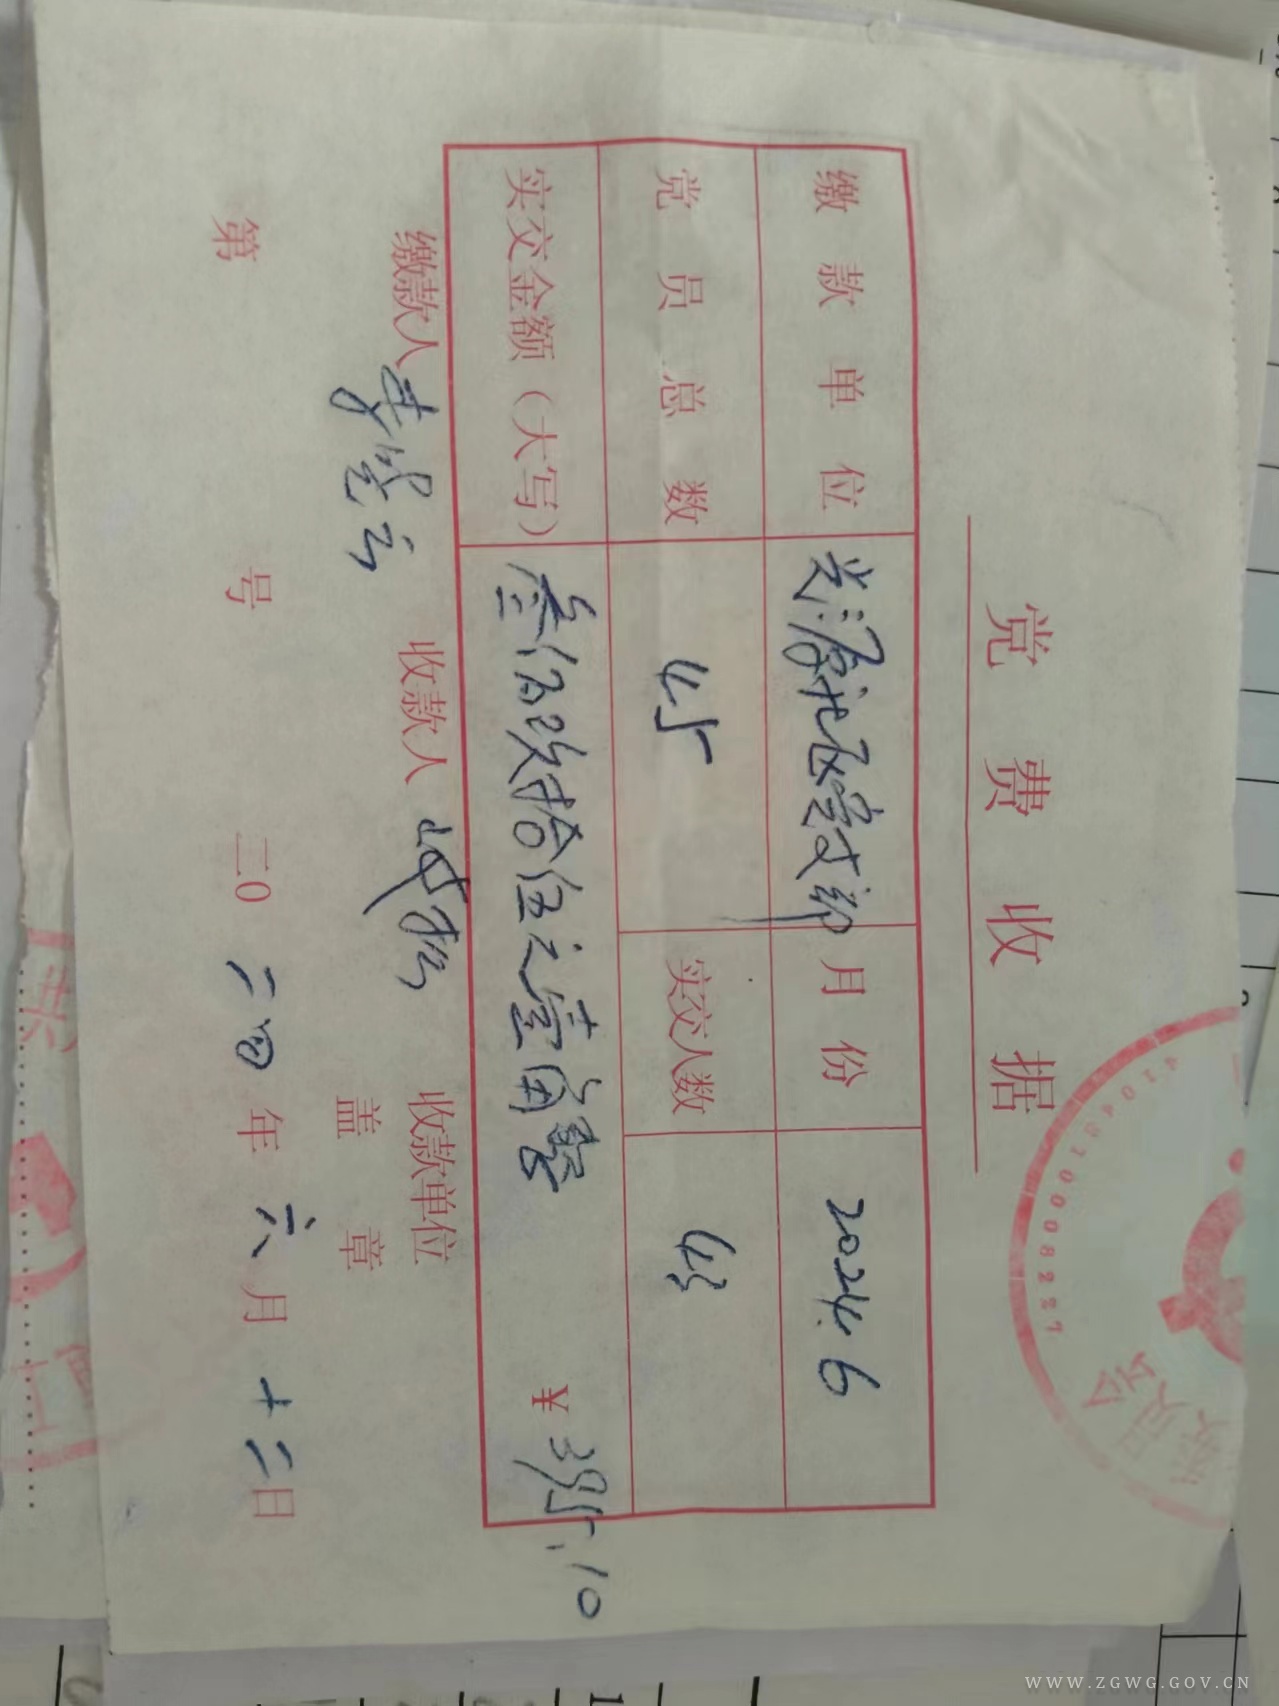 党费收据
缴款单位 月份 2024.6
党员总数 45 实交人数 45
实交金额（大写） 叁佰玖拾伍元壹角整 ¥ 395.10
缴款人 收款人 收款单位
盖章
第 号 二0二四年六月十二日
4104810008227
委员会
WWW.ZGWG.GOV.CN